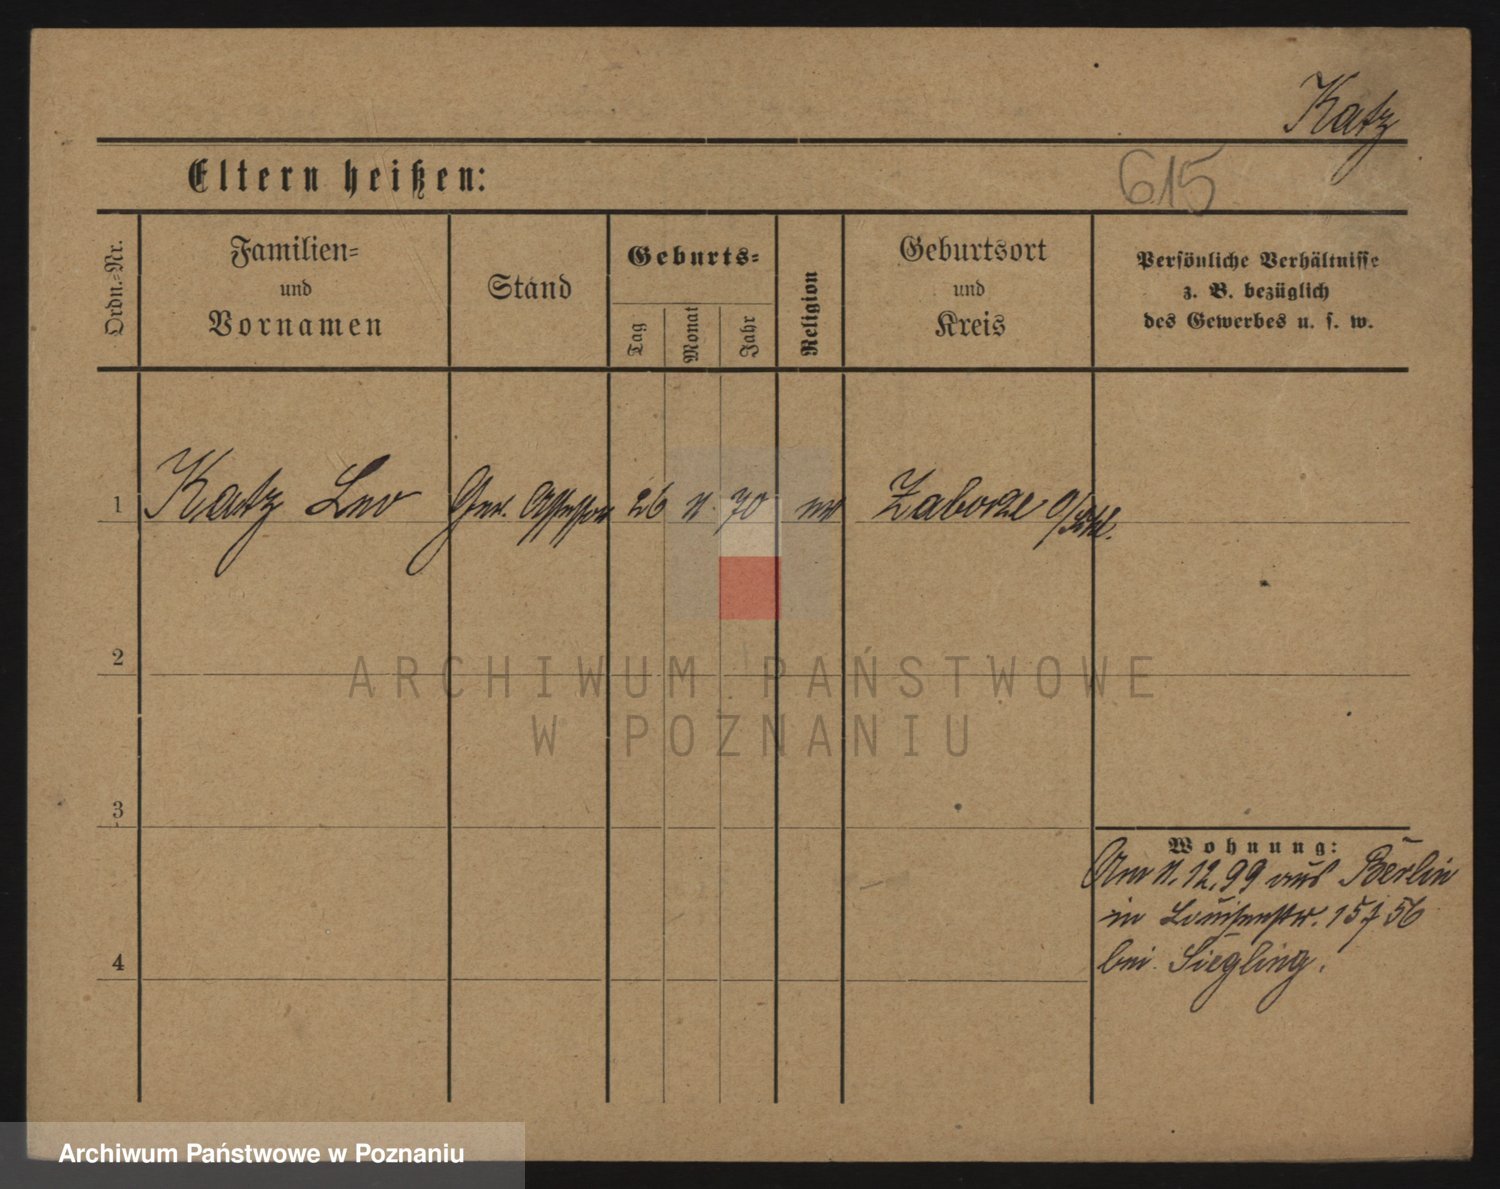 Katz
Eltern heißen:
615
Ordn.-Nr.
Familien-
und
Vornamen
Stand
Geburts-
Tag
Monat
Jahr
Religion
Geburtsort
und
Kreis
Persönliche Verhältnisse
z. B. bezüglich
des Gewerbes u. s. w.
1 Katz Leo Ger. Assessor 26 11 70 Zaborze O/Schl.
2
3
4
Wohnung:
Am 11.12.99 aus Berlin
in Louisenstr. 15
bei Siegling.
ARCHIWUM PAŃSTWOWE
W POZNANIU
Archiwum Państwowe w Poznaniu